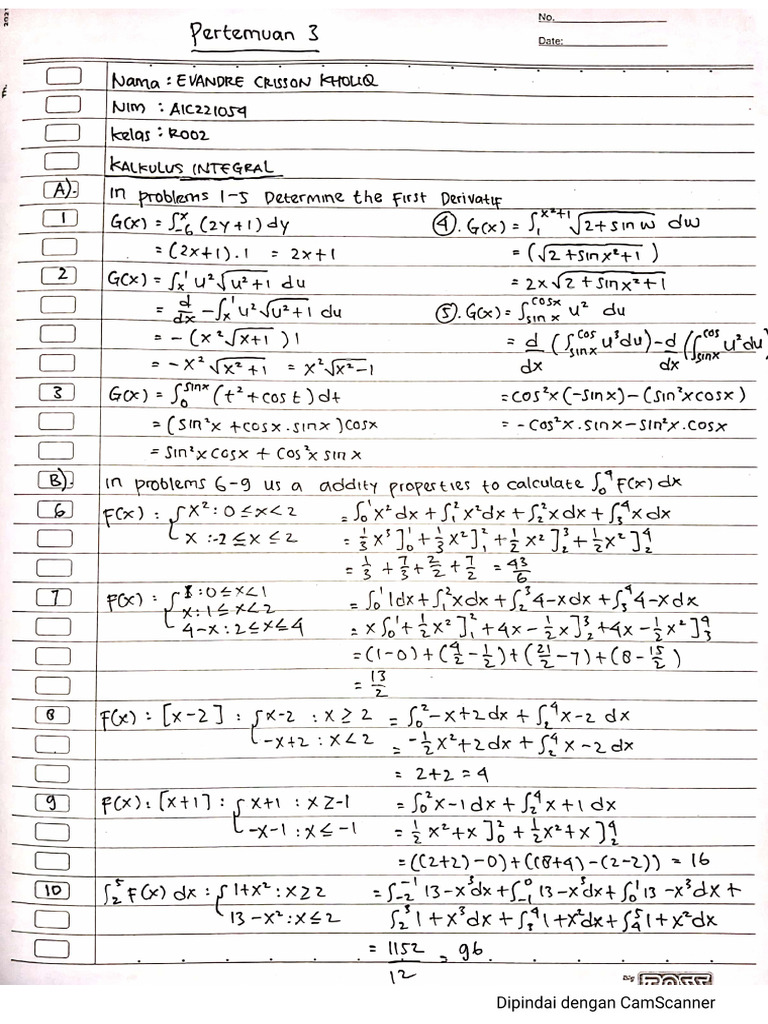 Pertemuan 3
No.
Date:
Nama : EVANDRE CRISSON KHOLIQ
NIM : A1C221054
Kelas : R002
KALKULUS INTEGRAL
A). In problems 1-5 Determine the First Derivatif
1 G(x) = ∫₋₆ˣ (2y+1) dy
= (2x+1).1 = 2x+1
2 G(x) = ∫ₓ¹ u²√(u²+1) du
= d/dx -∫ₓ¹ u²√(u²+1) du
= -(x²√(x+1))1
= -x²√(x²+1) = x²√(x²-1)
3 G(x) = ∫₀ˢⁱⁿˣ (t²+cos t) dt
= (sin²x + cosx . sinx) cosx
= sin²x cosx + cos²x sinx
④. G(x) = ∫₁^(x²+1) √(2+sin w) dw
= (√(2+sin x²+1))
= 2x√(2+sin x²+1)
⑤. G(x) = ∫_(sin x)^(cosx) u² du
= d/dx (∫_(sin x)^(cos) u³du) - d/dx (∫_(sinx)^(cos) u²du)
= cos²x(-sinx) - (sin²xcosx)
= -cos²x . sinx - sin²x . cosx
B). In problems 6-9 us a addity properties to calculate ∫₀⁴ F(x) dx
6 F(x) : { x² : 0 ≤ x < 2 = ∫₀¹ x² dx + ∫₁² x² dx + ∫₂² x dx + ∫₃⁴ x dx
x : -2 ≤ x ≤ 2 = 1/3 x³]₀¹ + 1/3 x²]₁² + 1/2 x²]₂³ + 1/2 x²]₂⁴
= 1/3 + 7/3 + 2/2 + 7/2 = 43/6
7 F(x) : { 1 : 0 ≤ x < 1 = ∫₀¹ 1dx + ∫₁² xdx + ∫₂³ 4-xdx + ∫₃⁴ 4-xdx
x : 1 ≤ x < 2
4-x : 2 ≤ x ≤ 4 = x∫₀¹ + 1/2 x²]₁² + 4x - 1/2 x]₂³ + 4x - 1/2 x²]₃⁴
= (1-0) + (4/2 - 1/2) + (21/2 - 7) + (8 - 15/2)
= 13/2
8 F(x) : [x-2] : { x-2 : x ≥ 2 = ∫₀² -x+2 dx + ∫₂⁴ x-2 dx
-x+2 : x < 2 = -1/2 x²+2 dx + ∫₂⁴ x-2 dx
= 2+2 = 4
9 F(x) : [x+1] : { x+1 : x ≥ -1 = ∫₀² x-1 dx + ∫₂⁴ x+1 dx
-x-1 : x ≤ -1 = 1/2 x²+x]₀² + 1/2 x²+x]₂⁴
= ((2+2)-0) + ((8+4)-(2-2)) = 16
10 ∫₂⁵ F(x) dx : { 1+x² : x ≥ 2 = ∫₋₂⁻¹ 13-x³dx + ∫₋₁⁰ 13-x³dx + ∫₀¹ 13-x³dx +
13-x² : x ≤ 2 ∫₂³ 1+x³dx + ∫₃⁴ 1+x²dx + ∫₄⁵ 1+x²dx
= 1152/12 = 96
Dipindai dengan CamScanner